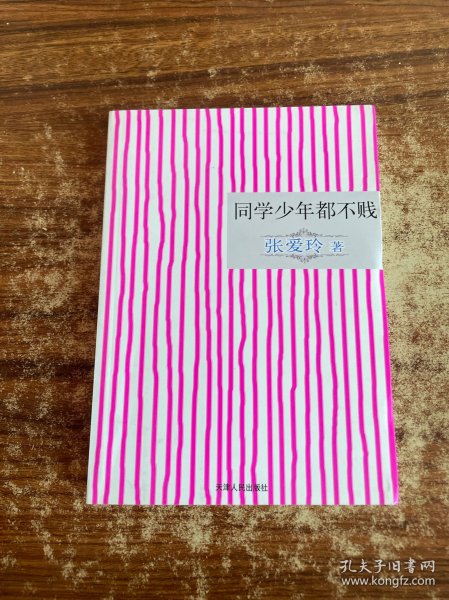 同学少年都不贱
张爱玲 著
天津人民出版社
孔夫子旧书网
www.kongfz.com